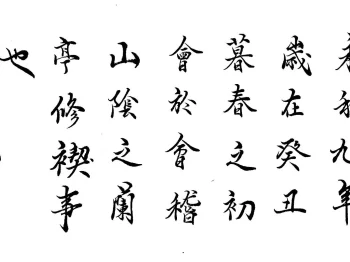 和九年
歲在癸丑
暮春之初
會於會稽
山陰之蘭
亭修禊事
也